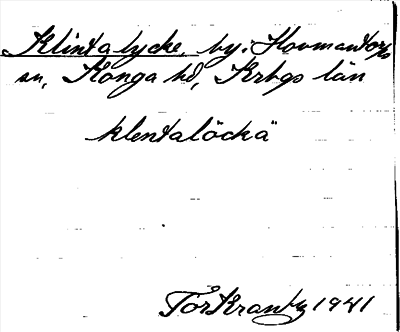 Klintalycke, by: Hovmantorps
sn, Konga hd, Krbgs län
klentalöckä
Tor Krantz 1941